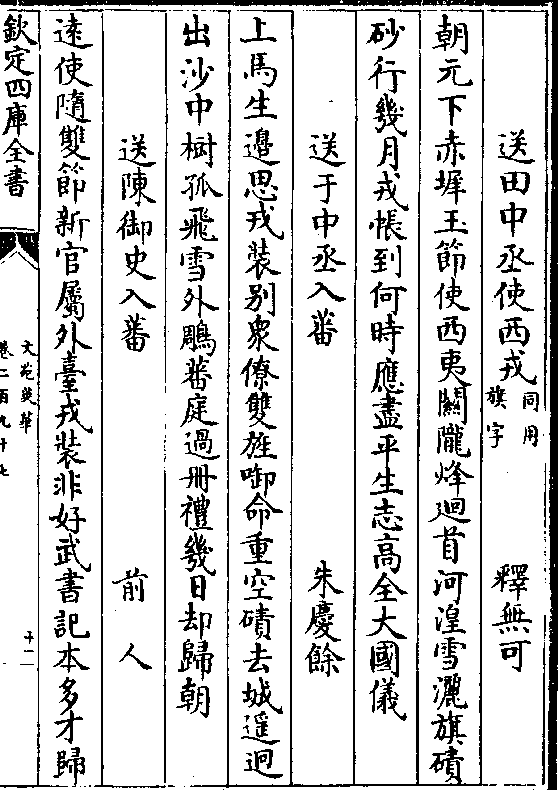 送田中丞使西戎同用旗字 釋無可
朝元下赤墀玉節使西夷關隴烽迴首河湟雪灑旗磧
砂行幾月戎帳到何時應盡平生志高全大國儀
送于中丞入蕃 朱慶餘
上馬生邊思戎裝别衆僚雙旌啣命重空磧去城遥迥
出沙中樹孤飛雪外鵰蕃庭過冊禮幾日却歸朝
送陳御史入蕃 前人
遠使隨雙節新官屬外臺戎裝非好武書記本多才歸
欽定四庫全書
文苑英華
卷二百九十七
十一